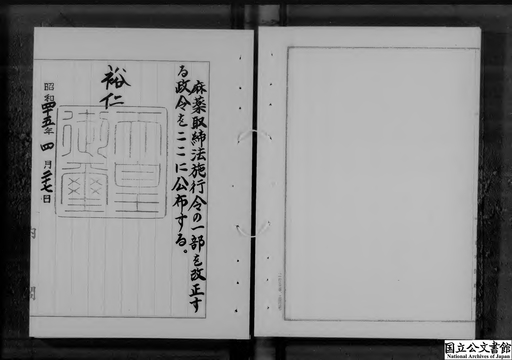 麻薬取締法施行令の一部を改正す
る政令をここに公布する。
裕仁
天皇
御璽
昭和四十五年四月二十七日
国立公文書館
National Archives of Japan